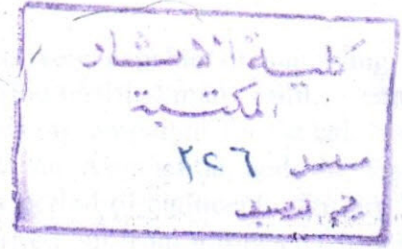 كلية الاستشار
المكتبة
مسلسل ٢٤٦
رقم التصنيف